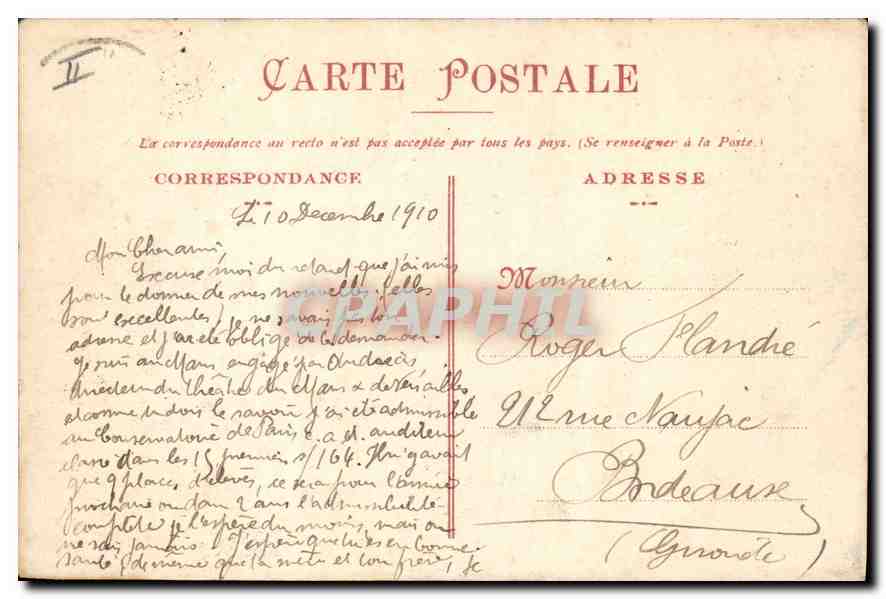 II
CARTE POSTALE
La correspondance au recto n'est pas acceptée par tous les pays. (Se renseigner à la Poste.)
CORRESPONDANCE
ADRESSE
Le 10 Decembre 1910
Mon Cher ami,
Excuse moi du retard que j'ai mis
pour te donner de mes nouvelles (elles
sont excellentes) je ne savais pas ton
adresse et j'ai été obligé de la demander.
Je suis au Mans engagé par
directeur du theatre du Mans & de Versailles
et comme tu dois le savoir j'ai été admissible
au Conservatoire de Paris c. a. d. auditeur
classé dans les 15 premiers s/164. Il n'y avait
que 9 places d'élèves, ce sera pour l'année
prochaine ou dans 2 ans l'admissibilité
complète je l'espère du moins, mais on
ne sait jamais. J'espère que tu es en bonne
santé, de meme que ta mère et ton frère,
Monsieur
Roger Flandré
212 rue Naujac
Bordeaux
(Gironde)
CPAPHIL